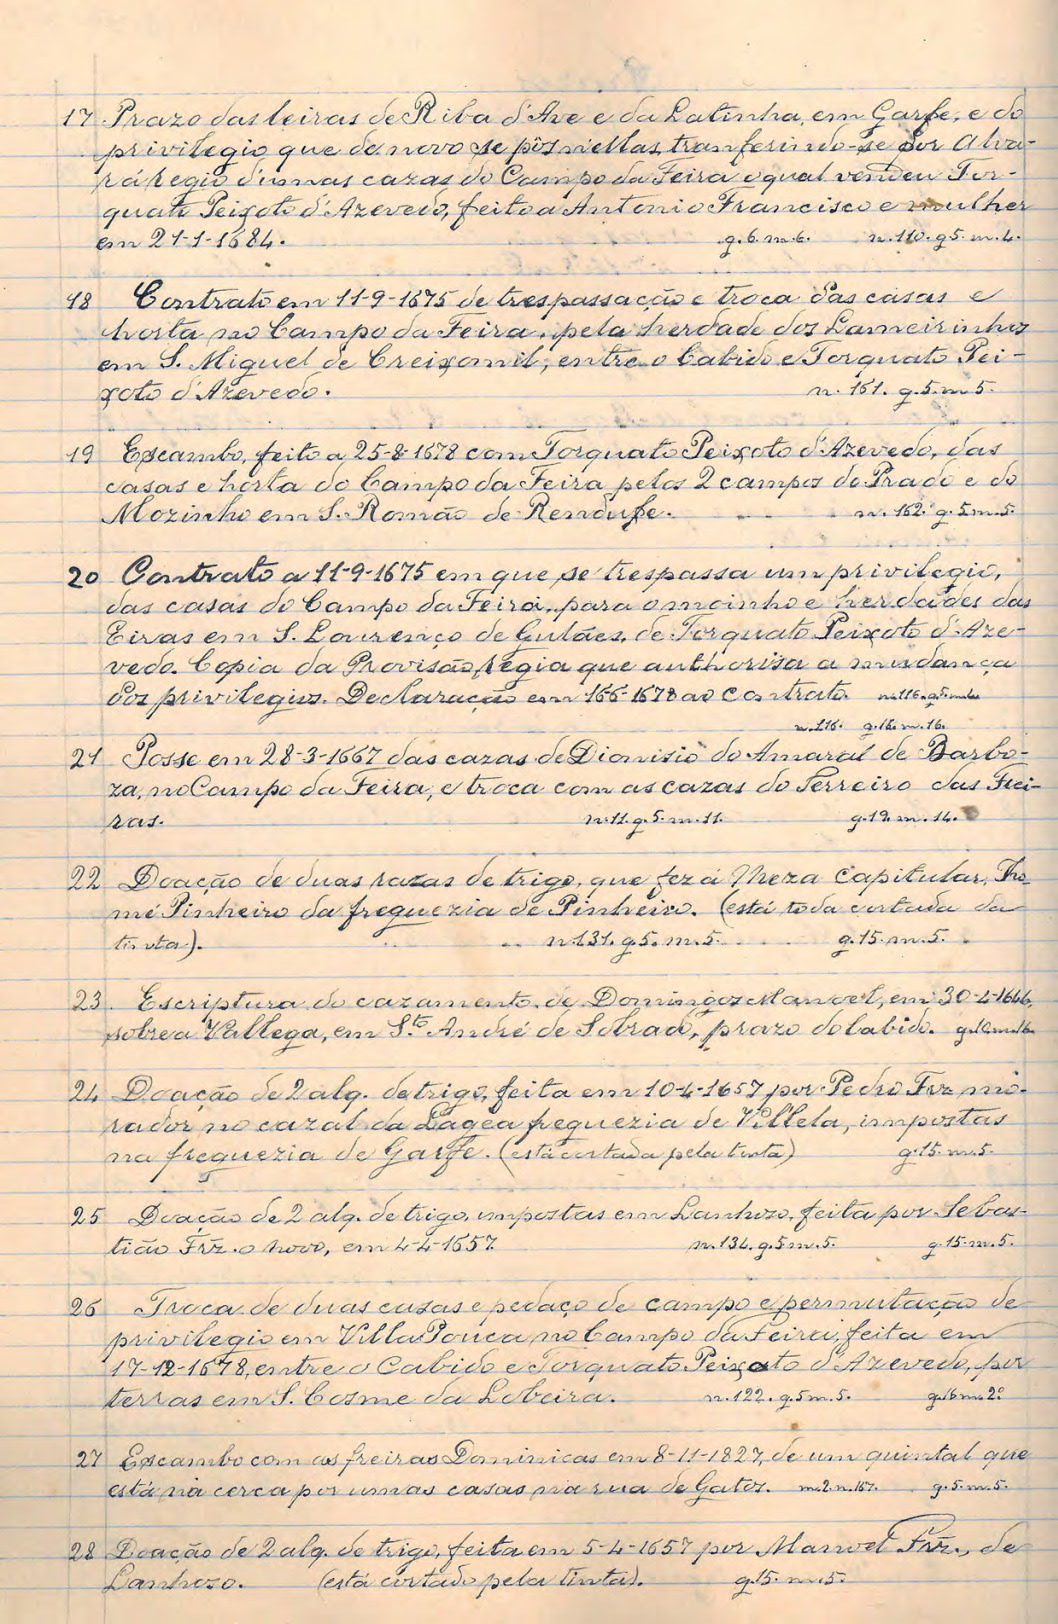 17 Prazo das leiras de Riba d'Ave e da Latinha, em Garfe, e do
privilegio que de novo se pôs niellas, tranferindo-se por Alva-
rá regio d'umas cazas do Campo da Feira o qual vendeu Tor-
quato Peixoto d'Azevedo, feito a Antonio Francisco e mulher
em 21-1-1684. g. 6. m. 6. n. 110. g 5. m. 4.
18 Contrato em 11-9-1675 de trespassação e troca das casas e
horta no Campo da Feira, pela herdade dos Lameirinhos
em S. Miguel de Creixomil, entre o Cabido e Torquato Pei-
xoto d'Azevedo. n. 161. g. 5. m 5.
19 Escambo, feito a 25-8-1678 com Torquato Peixoto d'Azevedo, das
casas e horta do Campo da Feira pelos 2 campos do Prado e do
Mozinho em S. Romão de Rendufe. n. 162. g. 5 m. 5.
20 Contrato a 11-9-1675 em que se trespassa um privilegio,
das casas do Campo da Feira, para o moinho e herdades das
Eiras em S. Lourenço de Gulães, de Torquato Peixoto d'Aze-
vedo. Copia da Provisão, regia que authorisa a mudança
dos privilegios. Declaração em 166-1678 ao contrato. n. 116. g. 5.
n. 116. g. 16. m. 16.
21 Posse em 28-3-1667 das cazas de Dionisio do Amaral de Barbo-
za, no Campo da Feira, e troca com as cazas do Terreiro das Frei-
ras. n. 11. g. 5. m. 11. g. 19. m. 14.
22 Doação de duas razas de trigo, que fez á Meza Capitular, Tho-
mé Pinheiro da freguezia de Pinheiro. (está toda cortada da
tinta). n 131. g. 5. m. 5. g. 15. m. 5.
23 Escriptura do cazamento de Domingos Manoel, em 30-4-1646,
sobre a Vallega, em S.to André de Sobrado, prazo do Cabido.
24 Doação de 2 alq. de trigo, feita em 10-4-1657 por Pedro Frz mo-
rador no cazal da Lagea freguezia de Villela, impostas
na freguezia de Garfe. (está cortada pela tinta) g. 15. m. 5.
25 Doação de 2 alq. de trigo, impostas em Lanhozo, feita por Sebas-
tião Frz. o novo, em 4-4-1657. n. 134. g. 5 m. 5. g. 15. m. 5.
26 Troca de duas casas e pedaço de campo e permutação de
privilegio em Villa Pouca no Campo da Feira, feita em
17-12-1678, entre o Cabido e Torquato Peixoto d'Azevedo, por
terras em S. Cosme da Lobeira. n. 122. g. 5 m. 5. g. 16 m. 2º
27 Escambo com as freiras Dominicas em 8-11-1827, de um quintal que
está na cerca por umas casas na rua de Gatos. m. 2. n. 157. g. 5. m. 5.
28 Doação de 2 alq. de trigo, feita em 5-4-1657 por Manoel Frz., de
Lanhozo. (está cortado pela tinta). g. 15. m. 5.